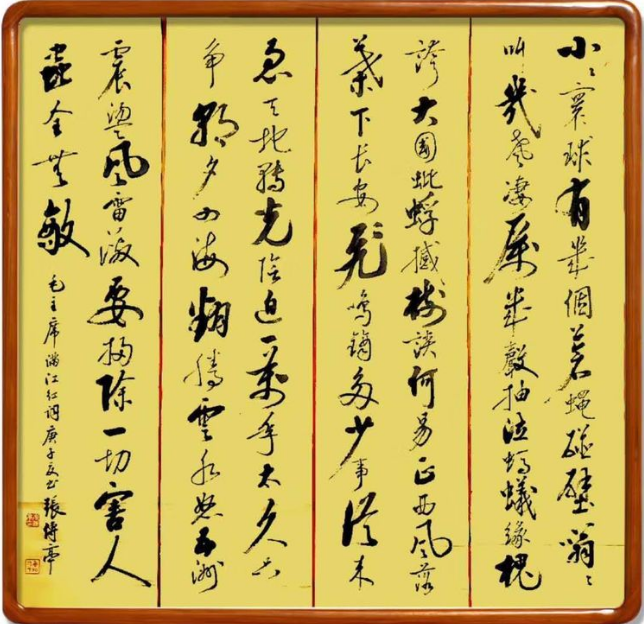 小〻寰球有幾個蒼蠅碰壁嗡〻
叫幾聲凄厲幾聲抽泣螞蟻緣槐
誇大國蚍蜉撼樹談何易正西風落
葉下長安飛鳴鏑多少事從来
急天地轉光陰迫一萬年太久只
争朝夕四海翻騰雲水怒五洲
震盪風雷激要掃除一切害人
蟲全無敵
毛主席滿江红詞庚子夏书張傳亭